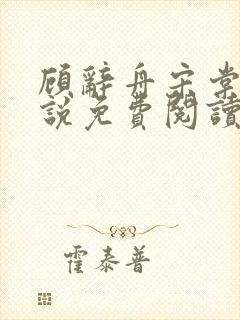 顾辭舟宋棠
說免費閱讀
霍泰普